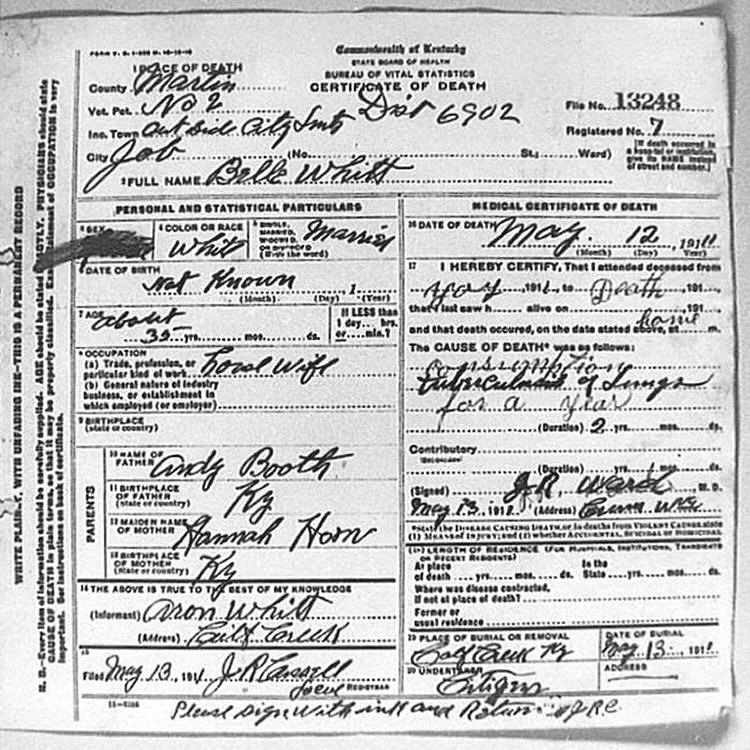 FORM V. S. 1-
Commonwealth of Kentucky
STATE BOARD OF HEALTH
BUREAU OF VITAL STATISTICS
CERTIFICATE OF DEATH
1 PLACE OF DEATH
County Martin
Vot. Pct. No 2
Dist 6902
File No. 13248
Inc. Town Out Side City
Registered No. 7
City Job (No. St.; Ward)
[If death occurred in a hospital or institution, give its NAME instead of street and number.]
2 FULL NAME Belle Whitt
PERSONAL AND STATISTICAL PARTICULARS
3 SEX
4 COLOR OR RACE
Whit
5 SINGLE, MARRIED, WIDOWED, OR DIVORCED (Write the word)
Married
6 DATE OF BIRTH
Not Known , 1
(Month) (Day) (Year)
7 AGE
about
35 yrs. mos. ds.
If LESS than 1 day... hrs. or... min.?
8 OCCUPATION
(a) Trade, profession, or particular kind of work House Wife
(b) General nature of industry business, or establishment in which employed (or employer)
9 BIRTHPLACE
(State or country)
PARENTS
10 NAME OF FATHER Andy Booth
11 BIRTHPLACE OF FATHER (State or country) Ky
12 MAIDEN NAME OF MOTHER Hannah Horn
13 BIRTHPLACE OF MOTHER (State or country) Ky
14 THE ABOVE IS TRUE TO THE BEST OF MY KNOWLEDGE
(Informant) Aron Whitt
(Address) Creek
15
Filed May 13, 191 J. R. Cassell
REGISTRAR
MEDICAL CERTIFICATE OF DEATH
16 DATE OF DEATH May 12, 191
(Month) (Day) (Year)
17 I HEREBY CERTIFY, That I attended deceased from
191 to Death 191
that I last saw h alive on 191
and that death occured, on the date stated above, at home m.
The CAUSE OF DEATH* was as follows:
consumption
Tuberculosis of Lungs
for a Year
(Duration) 2 yrs. mos. ds.
Contributory
(SECONDARY)
(Duration) yrs. mos. ds.
(Signed) J. R. Ward M. D.
May 13, 191 (Address)
*State the DISEASE CAUSING DEATH, or in deaths from VIOLENT CAUSES, state (1) MEANS OF INJURY; and (2) whether ACCIDENTAL, SUICIDAL or HOMICIDAL
18 LENGTH OF RESIDENCE (FOR HOSPITALS, INSTITUTIONS, TRANSIENTS OR RECENT RESIDENTS)
At place of death yrs. mos. ds. In the State yrs. mos. ds.
Where was disease contracted, if not at place of death?
Former or usual residence
19 PLACE OF BURIAL OR REMOVAL
Creek Ky
DATE OF BURIAL
May 13, 191
20 UNDERTAKER
Citizens
ADDRESS
Please sign With ink and Return J.R.C.
WRITE PLAINLY, WITH UNFADING INK—THIS IS A PERMANENT RECORD
N. B.—Every item of information should be carefully supplied. AGE should be stated EXACTLY. PHYSICIANS should state
CAUSE OF DEATH in plain terms, so that it may be properly classified. Exact statement of OCCUPATION is very
important. See instructions on back of certificate.